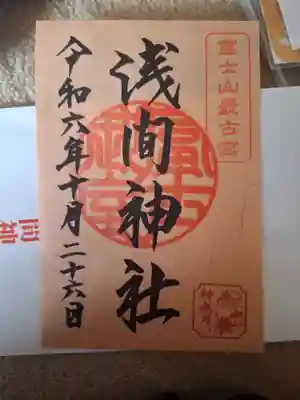 富士山最古宮
浅間神社
令和六年十月二十六日